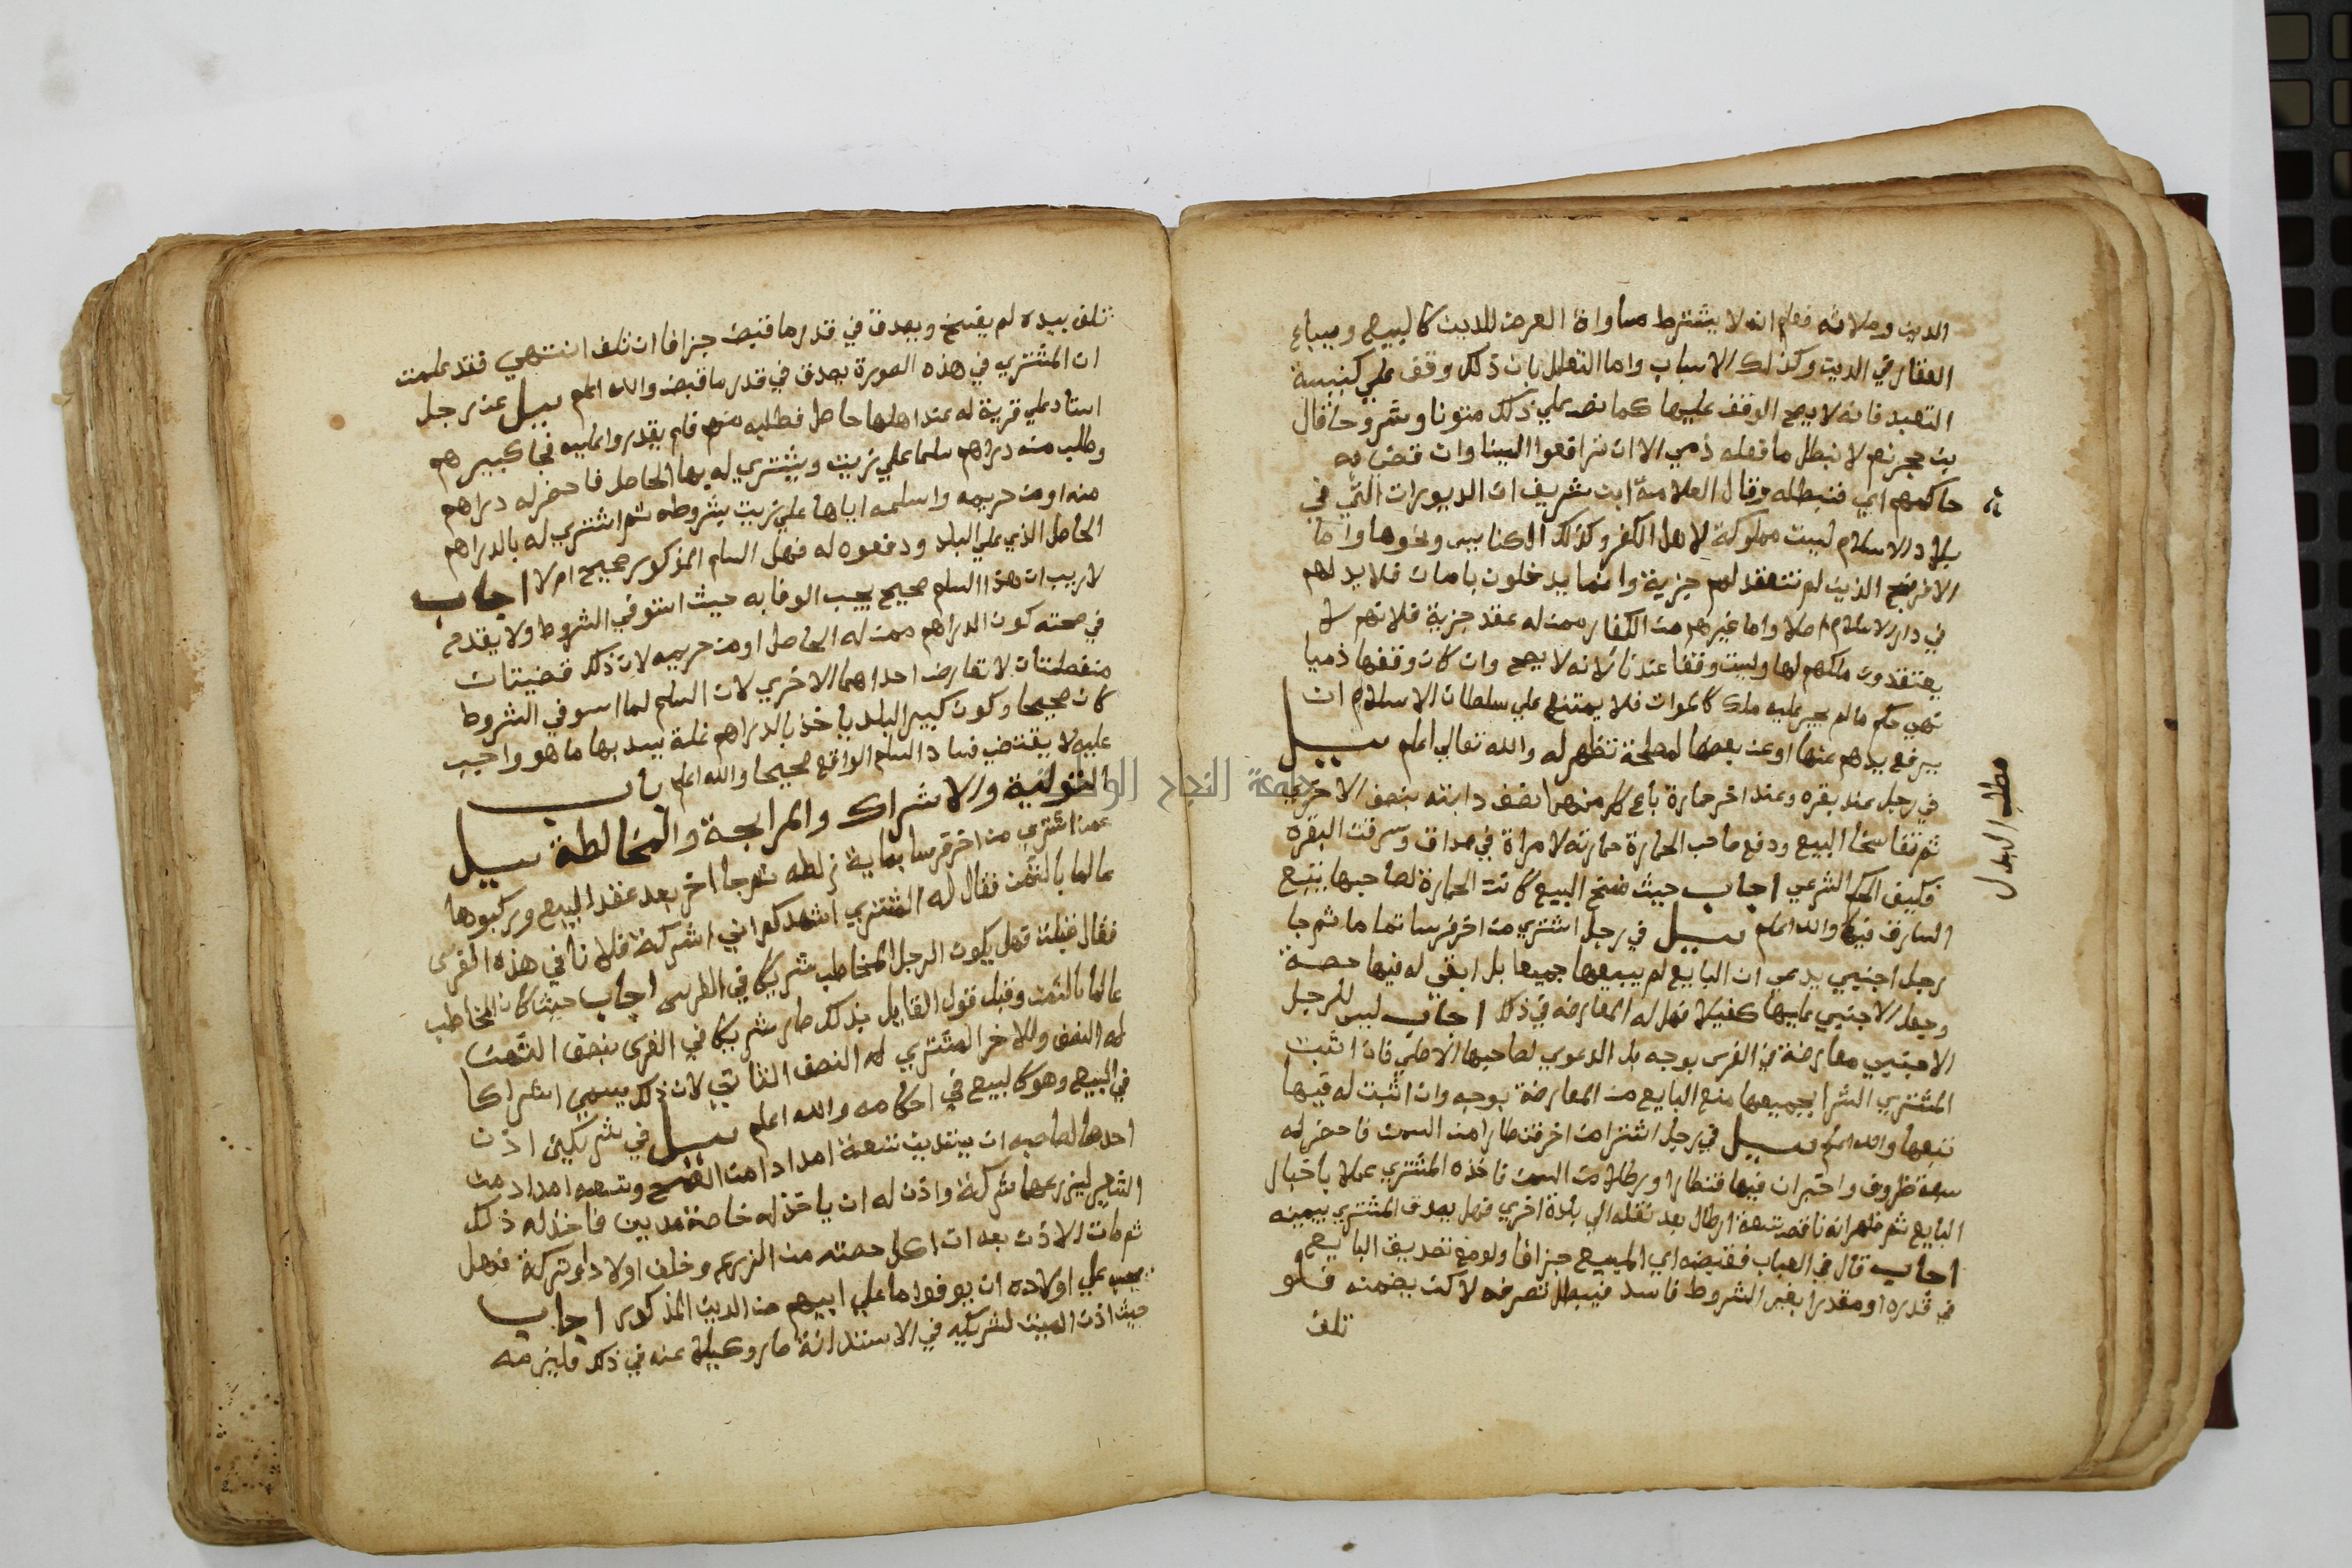 الدين وملائه فعلم انه لا يشترط مساواة العرض للدين كالبيع ويباع
العقار في الدين وكذلك الاسباب واما التعلل بان ذلك وقف علي كنيسة
التعبد فانه لا يصح الوقف عليها كما نص علي ذلك متونا وشروحا قال
بن حجر نعم لا نبطل ما فعله ذمي الا ان ترافعوا الينا وان قضي به
حاكمهم اي فنبطله وقال العلامة ابن شريف ان الديورات التي في
بلاد الاسلام ليست مملوكة لاهل الكفر وكذلك الكنايس ونحوها واما
الافرنج الذين لم تنعقد لهم جزية وانما يدخلون بامان فلا يد لهم
في دار الاسلام اصلا واما غيرهم من الكفار ممن له عقد جزية فلانهم لا
يعتقدون ملكهم لها وليست وقفا عندنا لانه لا يصح وان كان وقفها ذميا
فهي حكم ما لم يجر عليه ملك كالموات فلا يمتنع علي سلطان الاسلام ان
يرفع يدهم عنها او عن بعضها لمصلحة تظهر له والله تعالي اعلم سيل
في رجل عنده بقره وعند اخر حمارة باع كل منهما نصف دابته بنصف الاخري
ثم تفاسخا البيع ودفع صاحب الحمارة حمارته لامراة في صداق وسرقت البقره
فكيف الحكم الشرعي اجاب حيث فسخ البيع كانت الحمارة لصاحبها يتبع
السارق فيها والله اعلم سيل في رجل اشتري من اخر فرسا تماما ثم جا
رجل اجنبي يدعي ان البايع لم يبيعها جميعا بل ابقي له فيها حصة
وجعل الاجنبي عليها كفيلا فهل له المعارضه في ذلك اجاب ليس للرجل
الاجنبي معارضة في الفرس بوجه بل الدعوي لصاحبها الاصلي فان اثبت
المشتري الشرا بجميعها منع البايع من المعارضة بوجه وان اثبت له فيها
تبعها والله اعلم سيل في رجل اشترا من اخر قنطارا من السمن فاحضر له
سبعة ظروف واخبر ان فيها قنطارا ورطلا من السمن فاخذه المشتري عملا باخبال
البايع ثم ظهر انه ناقص تسعة ارطال بعد نقله الي بلدة اخري فهل يصدق المشتري بيمينه
اجاب قال في العباب فقبضه اي المبيع جزافا ولو مع تصديق البايع
في قدره او مقدرا بغير الشروط فاسد فيبطل تصرفه لاكن يضمنه فلو
تلف
مطلب البدل
تلف بيده لم يفسخ ويصدق في قدر ما قبض جزافا ان تلف انتهي فقد علمت
ان المشتري في هذه الصورة يصدق في قدر ما قبض والله اعلم سيل عن رجل
استاد علي قرية له عند اهلها حاصل فطلبه منهم فلم يقدروا عليه فجا كبيرهم
وطلب منه دراهم سلما علي زيت ويشتري له بها الحاصل فاحضر له دراهم
منه او من حريمه واسلمه اياها علي زيت بشروطه ثم اشتري له بالدراهم
الحاصل الذي علي البلد ودفعوه له فهل السلم المذكور صحيح ام لا اجاب
لا ريب ان هذا السلم صحيح يجب الوفا به حيث استوفي الشروط ولا يقدح
في صحته كون الدراهم ممن له الحاصل او من حريمه لان ذلك قضيتان
منفصلتان لا تعارض احداهما الاخري لان السلم لما اسوفي الشروط
كان صحيحا وكون كبير البلد ياخذ بالدراهم غلة يسد بها ما هو واجب
عليه لا يقتضي فساد السلم الواقع صحيحا والله اعلم باب
التولية والاشراك والمرابحة والمخالطة سيل
عمن اشتري من اخر فرسا بماية زلطه ثم جا اخر بعد عقد البيع وركبوها
عالما بالثمن فقال له المشتري اشهدكم اني اشركت فلانا في هذه الفرس
فقال قبلت فهل يكون الرجل المخاطب شريكا في الفرس اجاب حيث كان المخاطب
عالما بالثمن وقبل قول القايل بذلك صار شريكا في الفرس بنصف الثمن
له النصف وللاخر المشتري له النصف الثاني لان ذلك يسمي اشراكا
في البيع وهو كالبيع في احكامه والله اعلم سيل في شريكين اذن
احدهما لصاحبه ان يتدين تسعة امداد من القمح وتسعه امداد من
الشعير ليزرعها شركة واذن له ان ياخذ له خاصة مدين فاخذ له ذلك
ثم مات الاذن بعد ان اكل حصته من الزرع وخلف اولاد وتركة فهل
يجب علي اولاده ان يوفوا ما علي ابيهم من الدين المذكور اجاب
حيث اذن الميت لشريكه في الاستدانة صار وكيلا عنه في ذلك فليزمه
جامعة النجاح الوطنية